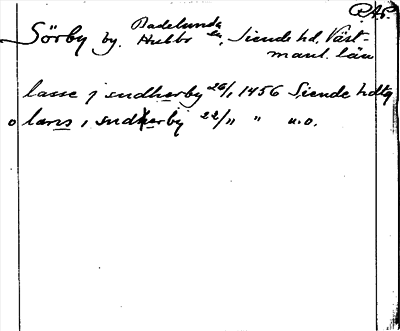 P.A.S.
Sörby by, Badelunda sn, Siende hd, Väst-
Hubbo manl. län
lasse j sudherby 26/1 1456 Siende hdtg
o lars i sudherby 22/11 " u.o.